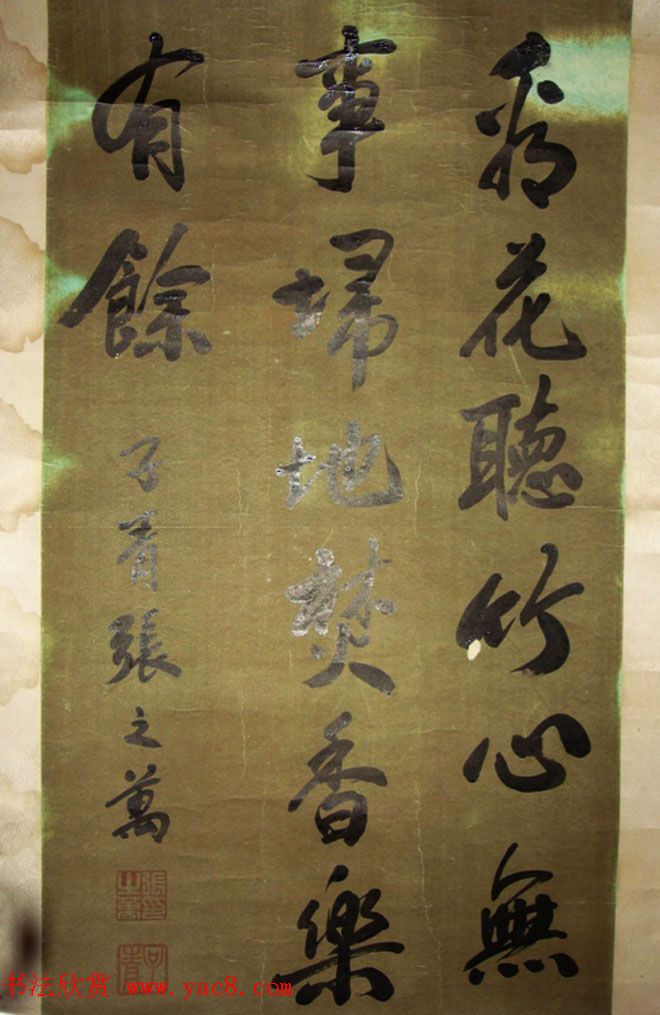 看花聽竹心無
事掃地焚香樂
有餘
子青張之萬
張之萬印
子青
书法欣赏 www.yac8.com